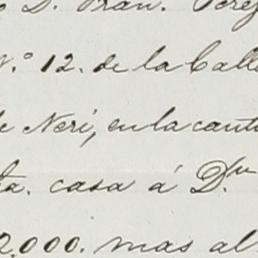 D. Fran. Perez
N.º 12. de la Calle
de Neri, en la canti
ta. casa á D.ⁿ
2.000. mas al